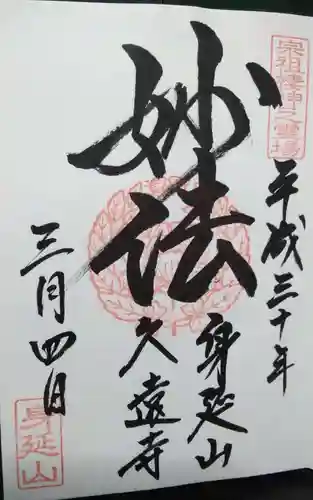 宗祖棲神之霊場
平成三十年
妙法
身延山
久遠寺
三月四日
身延山